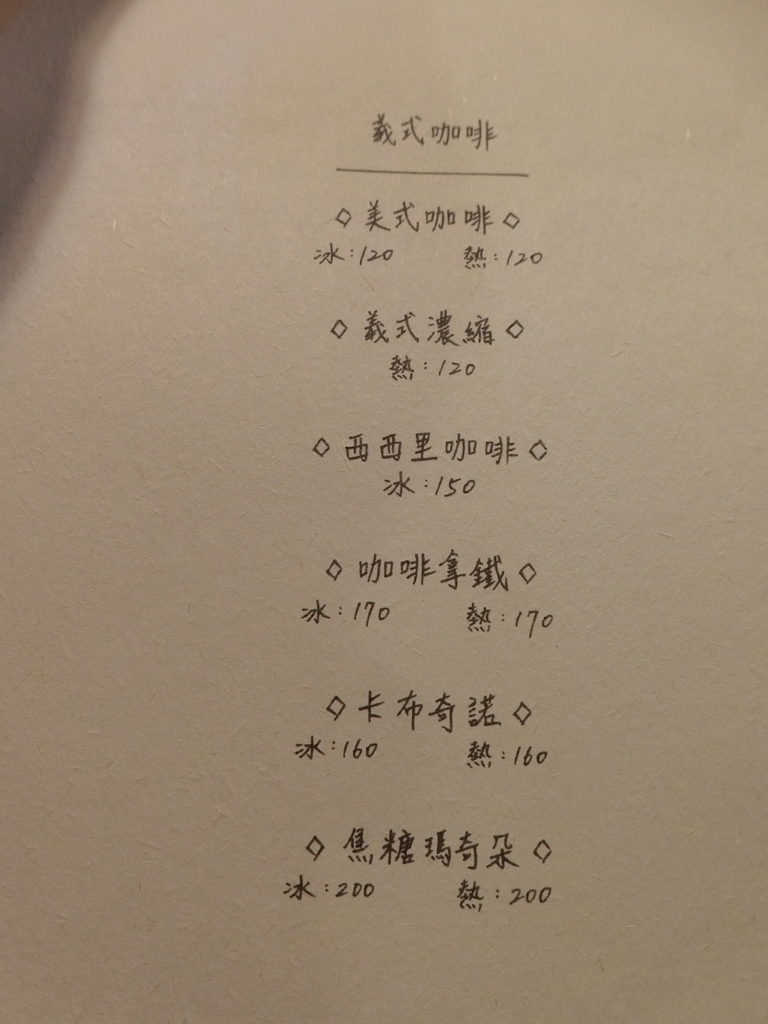 義式咖啡
◇ 美式咖啡 ◇
冰:120 熱:120
◇ 義式濃縮 ◇
熱:120
◇ 西西里咖啡 ◇
冰:150
◇ 咖啡拿鐵 ◇
冰:170 熱:170
◇ 卡布奇諾 ◇
冰:160 熱:160
◇ 焦糖瑪奇朵 ◇
冰:200 熱:200